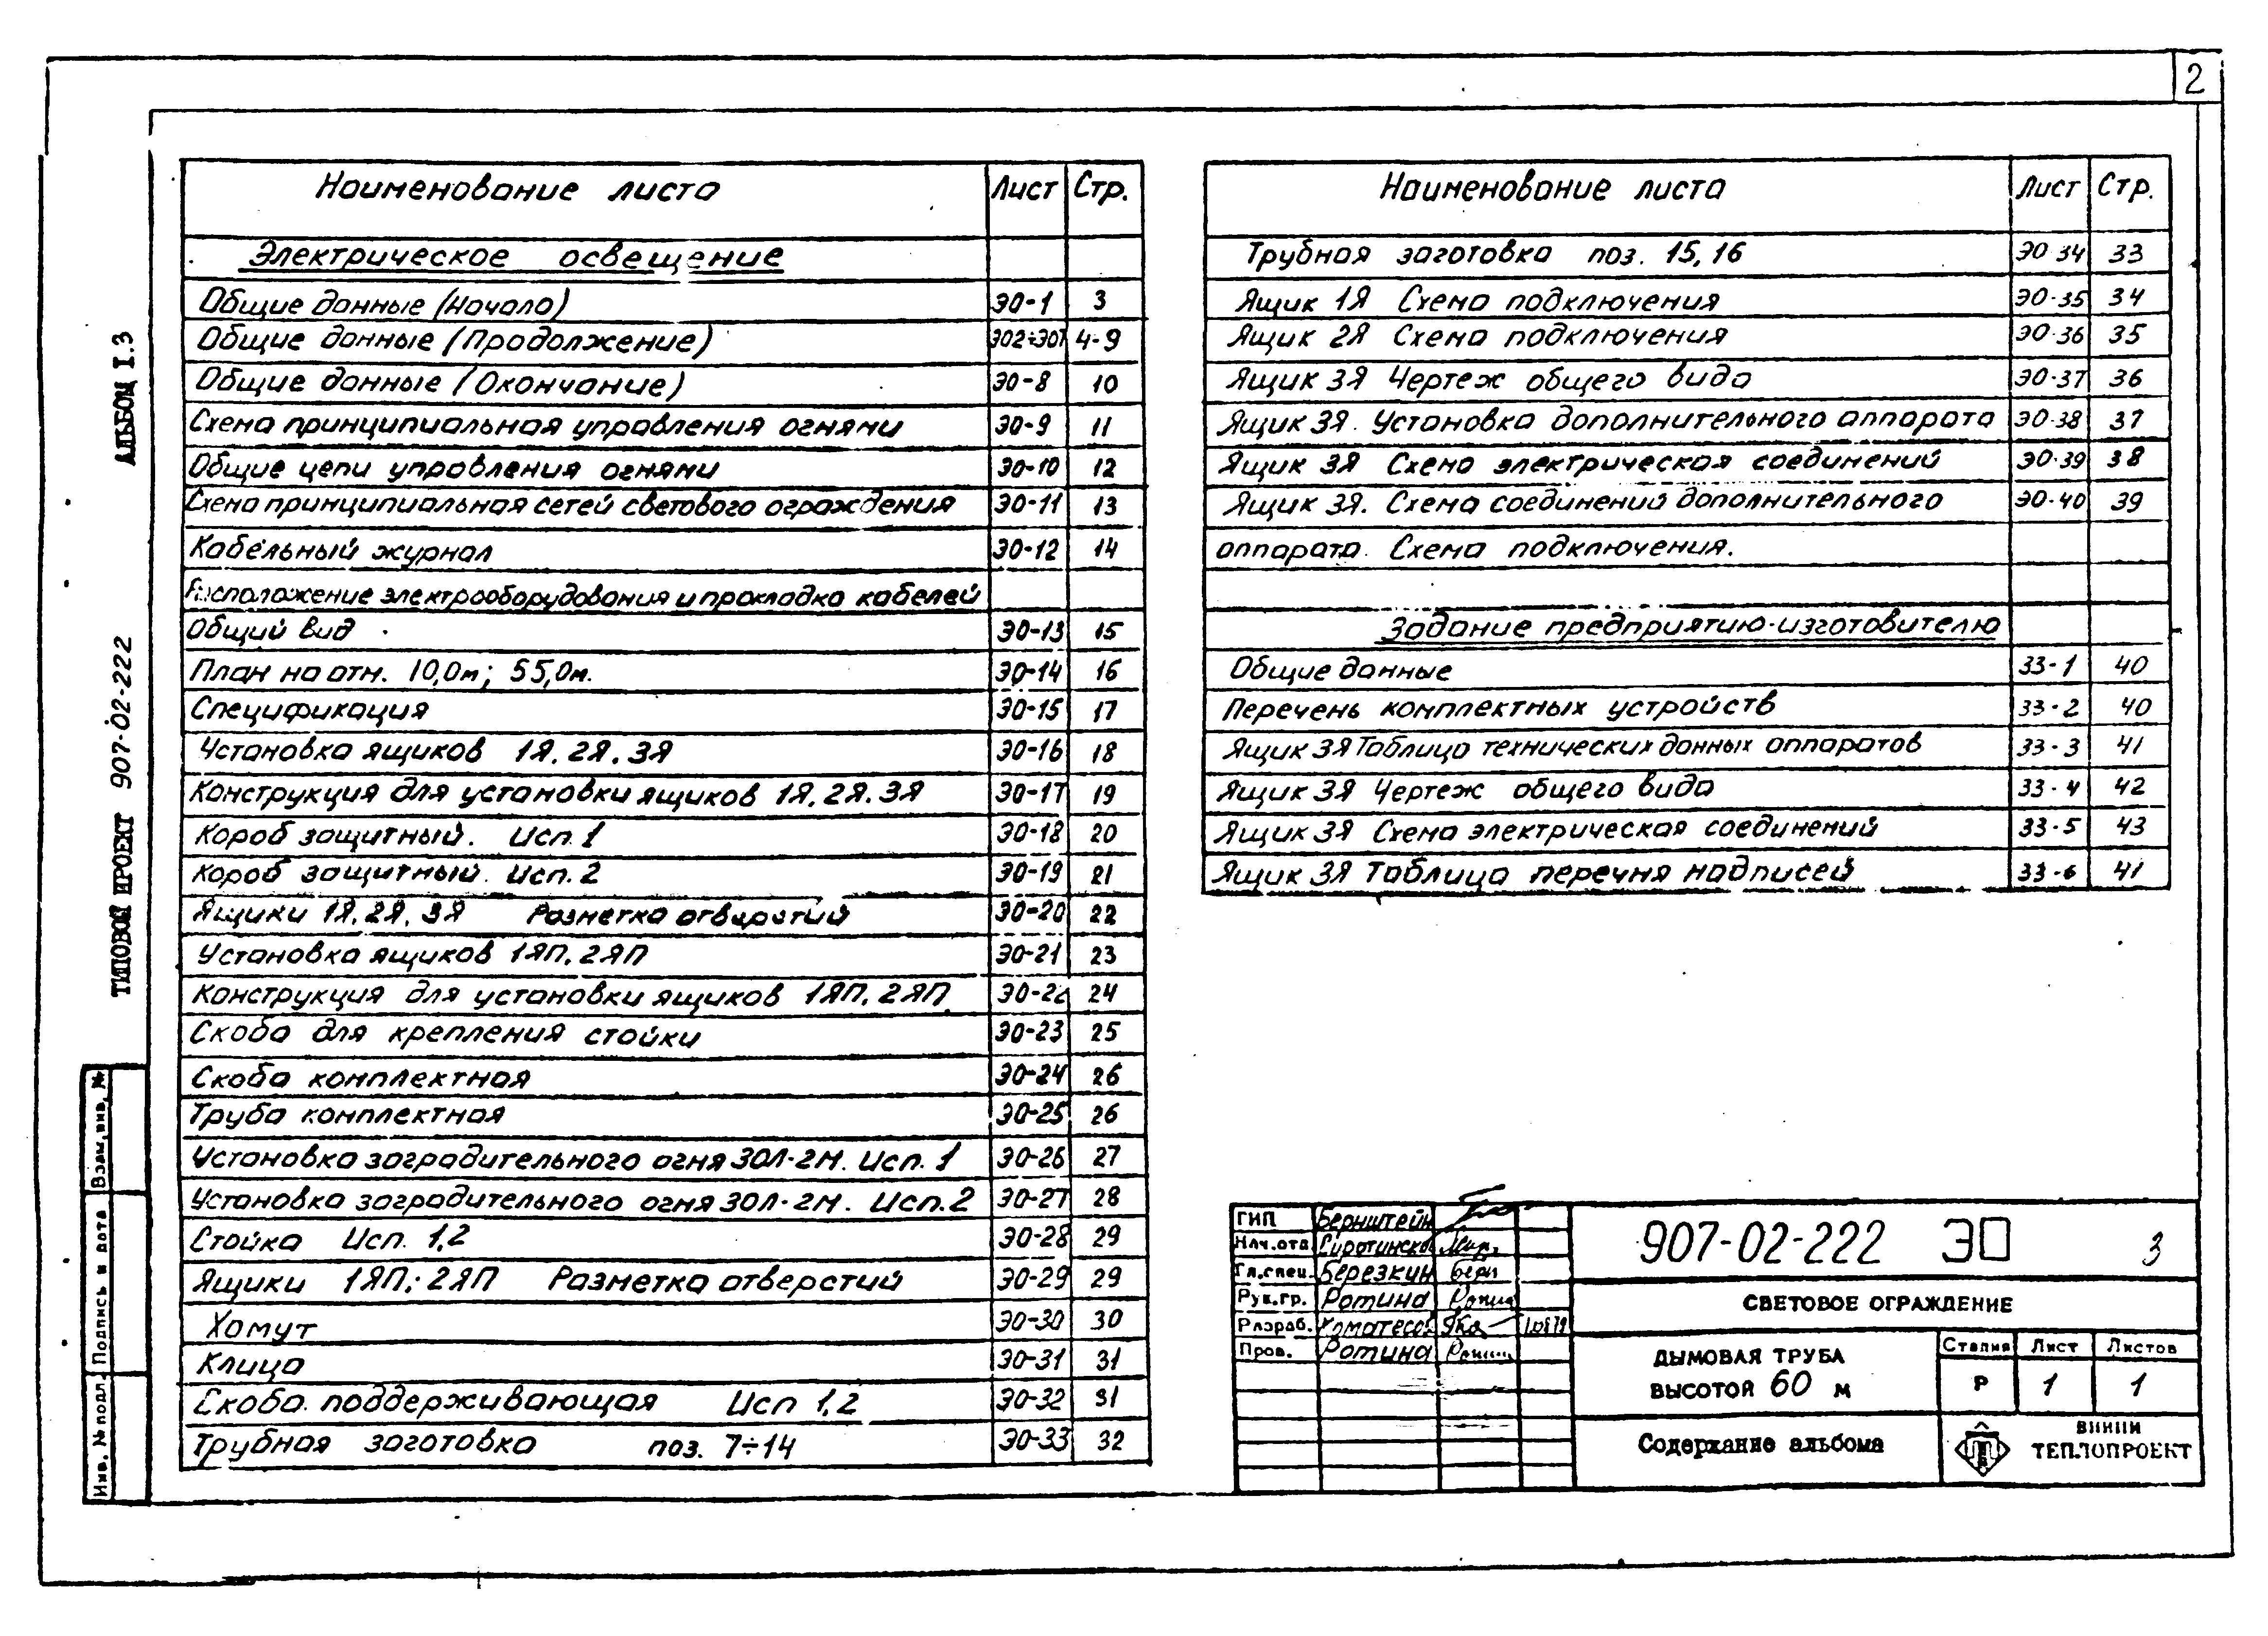 2
Наименование листа Лист Стр.
Электрическое освещение
Общие данные (Начало) ЭО-1 3
Общие данные (Продолжение) ЭО2÷ЭО7 4-9
Общие данные (Окончание) ЭО-8 10
Схема принципиальная управления огнями ЭО-9 11
Общие цепи управления огнями ЭО-10 12
Схема принципиальная сетей светового ограждения ЭО-11 13
Кабельный журнал ЭО-12 14
Расположение электрооборудования и прокладка кабелей
Общий вид ЭО-13 15
План на отм. 10,0м; 55,0м. ЭО-14 16
Спецификация ЭО-15 17
Установка ящиков 1Я, 2Я, 3Я ЭО-16 18
Конструкция для установки ящиков 1Я, 2Я, 3Я ЭО-17 19
Короб защитный. Исп. 1 ЭО-18 20
Короб защитный. Исп. 2 ЭО-19 21
Ящики 1Я, 2Я, 3Я Разметка отверстий ЭО-20 22
Установка ящиков 1ЯП, 2ЯП ЭО-21 23
Конструкция для установки ящиков 1ЯП, 2ЯП ЭО-22 24
Скоба для крепления стойки ЭО-23 25
Скоба комплектная ЭО-24 26
Труба комплектная ЭО-25 26
Установка заградительного огня ЗОЛ-2М. Исп. 1 ЭО-26 27
Установка заградительного огня ЗОЛ-2М. Исп. 2 ЭО-27 28
Стойка Исп. 1,2 ЭО-28 29
Ящики 1ЯП; 2ЯП Разметка отверстий ЭО-29 29
Хомут ЭО-30 30
Клица ЭО-31 31
Скоба поддерживающая Исп 1,2 ЭО-32 31
Трубная заготовка поз. 7÷14 ЭО-33 32
Наименование листа Лист Стр.
Трубная заготовка поз. 15,16 ЭО-34 33
Ящик 1Я Схема подключения ЭО-35 34
Ящик 2Я Схема подключения ЭО-36 35
Ящик 3Я Чертеж общего вида ЭО-37 36
Ящик 3Я. Установка дополнительного аппарата ЭО-38 37
Ящик 3Я Схема электрическая соединений ЭО-39 38
Ящик 3Я. Схема соединений дополнительного ЭО-40 39
аппарата. Схема подключения.
Задание предприятию-изготовителю
Общие данные ЗЗ-1 40
Перечень комплектных устройств ЗЗ-2 40
Ящик 3Я Таблица технических данных аппаратов ЗЗ-3 41
Ящик 3Я Чертеж общего вида ЗЗ-4 42
Ящик 3Я Схема электрическая соединений ЗЗ-5 43
Ящик 3Я Таблица перечня надписей ЗЗ-6 41
ТИПОВОЙ ПРОЕКТ 907-02-222 АЛЬБОМ I.3
Инв. № подл. Подпись и дата Взам. инв. №
ГИП Бернштейн
Нач.отд.
Гл.спец. Березкин
Рук.гр. Ротина
Разраб.
Пров. Ротина
907-02-222 ЭО 3
СВЕТОВОЕ ОГРАЖДЕНИЕ
ДЫМОВАЯ ТРУБА
ВЫСОТОЙ 60 м
Стадия Лист Листов
Р 1 1
Содержание альбома
ВНИПИ
ТЕПЛОПРОЕКТ